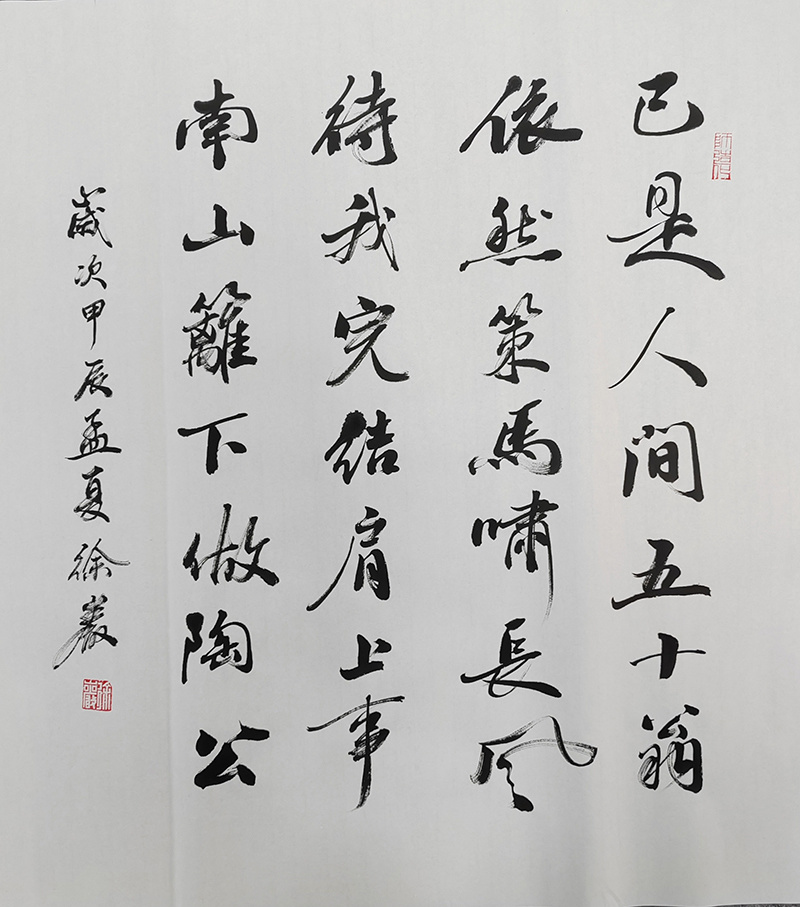 已是人间五十翁
依然策馬啸長风
待我完结肩上事
南山籬下做陶公
歲次甲辰孟夏徐巖
徐巖